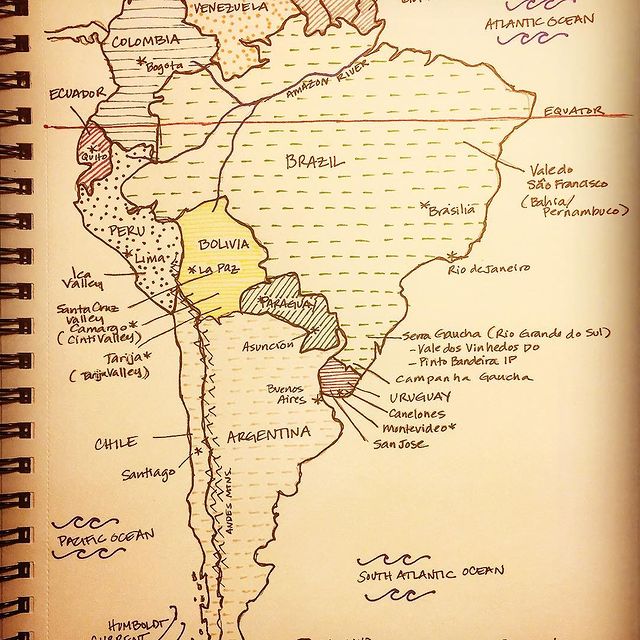 VENEZUELA
ATLANTIC OCEAN
COLOMBIA
*Bogota
ECUADOR
AMAZON RIVER
EQUATOR
Quito
BRAZIL
Vale do
São Francisco
(Bahia/
Pernambuco)
*Brasilia
PERU
*Lima
BOLIVIA
*LA PAZ
Rio de Janeiro
Ica
Valley
Santa Cruz
Valley
Camargo*
(Cinti Valley)
Tarija*
(Tarija Valley)
PARAGUAY
Asunción
Serra Gaucha (Rio Grande do Sul)
- Vale dos Vinhedos DO
- Pinto Bandeira IP
Campanha Gaucha
Buenos
Aires
URUGUAY
Canelones
Montevideo*
San Jose
CHILE
ARGENTINA
Santiago
ANDES MTNS.
PACIFIC OCEAN
SOUTH ATLANTIC OCEAN
HUMBOLDT
CURRENT